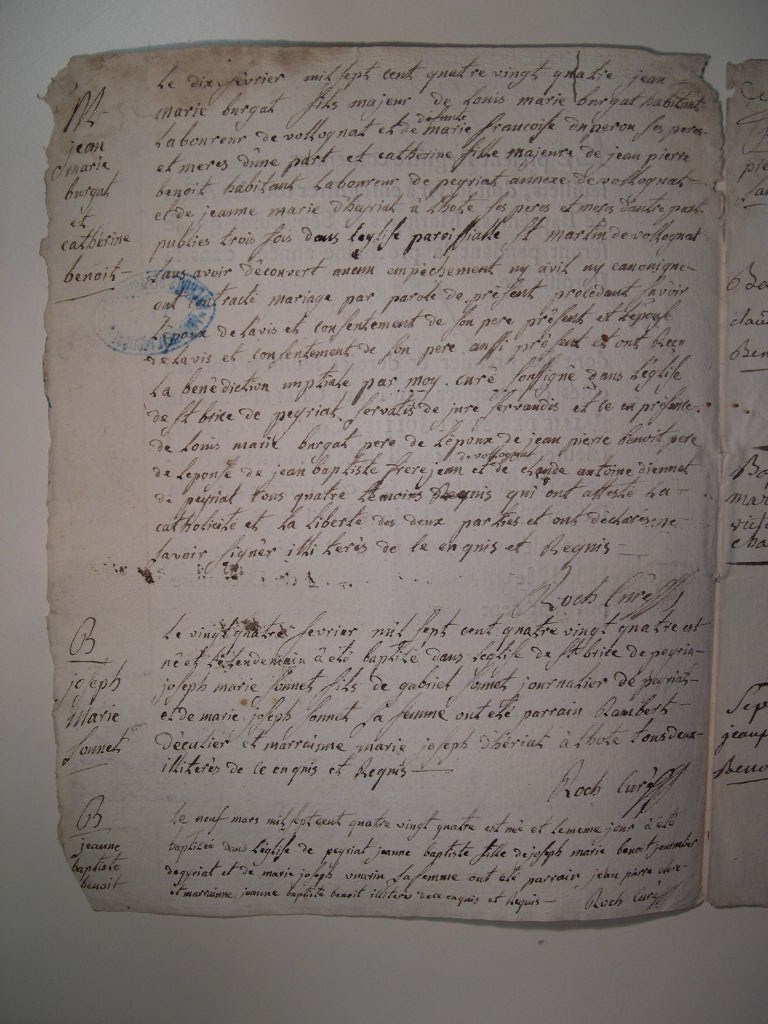 M
jean
marie
burgat
et
catherine
benoit
Le dix fevrier mil sept cent quatre vingt quatre jean
marie burgat fils majeur de louis marie burgat habitant
laboureur de vollognat et de defunte marie francoise duperou ses peres
et meres d'une part et catherine fille majeure de jean pierre
benoit habitant laboureur de peyriat annexe de vollognat
et de jeanne marie d'heyriat à l'hote ses peres et meres d'autre part
publies trois fois dans l'eglise paroissialle st martin de vollognat
sans avoir découvert aucun empêchement ny civil ny canonique
ont contracté mariage par parole de présent procédant savoir
l'époux de l'avis et consentement de son pere présent et l'épouse
de l'avis et consentement de son pere aussi présent et ont reçu
la benédiction nuptiale par moy curé soussigné dans l'église
de st brice de peyriat servatis de jure servandis et ce en présence
de louis marie burgat pere de l'époux de jean pierre benoit pere
de l'epouse de jean baptiste frerejean de vollognat et de claude antoine diennet
de peyriat tous quatre temoins Requis qui ont attesté la
catholicité et la liberté des deux parties et ont déclarés ne
savoir signer illiterés de ce enquis et Requis
Roch Curé
B
joseph
marie
sonnet
Le vingt quatre fevrier mil sept cent quatre vingt quatre est
né et le lendemain à été baptisé dans l'eglise de st brice de peyria
joseph marie sonnet fils de gabriel sonnet journalier de peyriat
et de marie joseph sonnet sa femme ont eté parrain Rambert
décutier et marrainne marie joseph d'hériat à l'hote tous deux
illiterés de ce enquis et Requis
Roch Curé
B
jeanne
baptiste
benoit
Le neuf mars mil sept cent quatre vingt quatre est née et le meme jour à eté
baptisée dans l'église de peyriat jeanne baptiste fille de joseph marie benoit journalier
de pyriat et de marie joseph sa femme ont eté parrain jean pierre
et marrainne jeanne baptiste benoit illiterés de ce enquis et Requis
Roch Curé